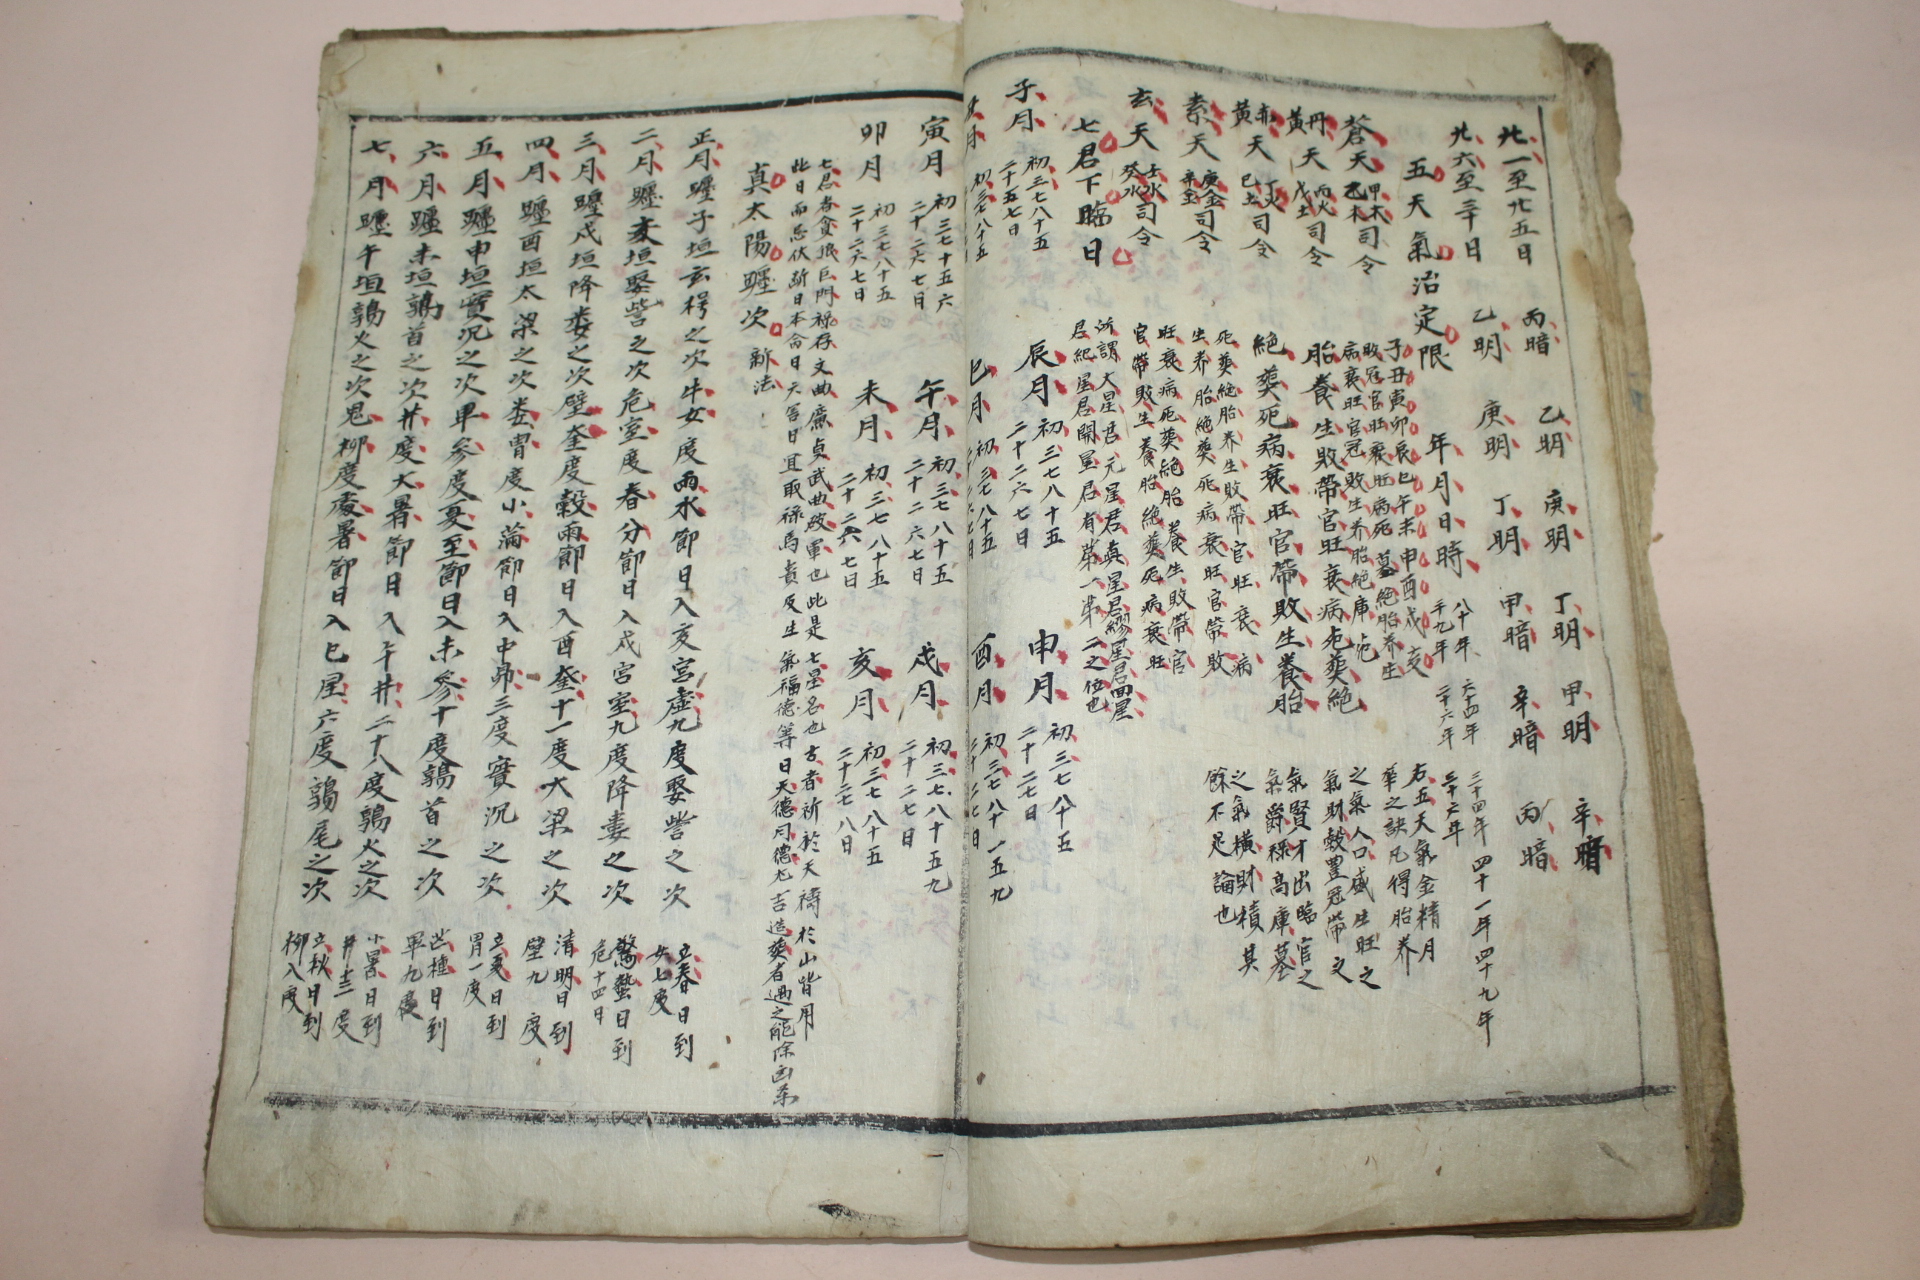 廿一至廿五日 丙暗 乙明 庚明 丁明 甲明 辛暗
廿六至三十日 乙明 庚明 丁明 甲暗 辛暗 丙暗
五天氣治定限 年月日時
八十年 六十四年 三十四年 四十一年 四十九年
蒼天 甲木 乙木 司令
丹黃天 丙火 戊土 司令
赤黃天 丁火 己土 司令
素天 庚金 辛金 司令
玄天 壬水 癸水 司令
子丑寅卯辰巳午未申酉戌亥
敗冠官旺衰旺病死墓絶胎养生
病衰旺官冠敗生养胎絶庫
胎養生敗帶官旺衰病死葬絶
絶葬死病衰旺官帶敗生養胎
死葬絶胎养生敗帶官旺衰病
生养胎絶葬死病衰旺官帶敗
旺衰病死葬絶胎養生敗帶官
官帶敗生養胎絶葬死病衰旺
右五天氣金精月
華之訣凡得胎养
之氣人口盛生旺之
氣財穀豊冠帶文
氣賢才出臨官之
氣爵祿高庫墓
之氣橫財積其
餘不足論也
七君下臨日
所謂大星君元星君眞星君繆星君罡星
君紀星君開星君有第一第二之位也
子月 初三七八十五 二十五七日
辰月 初三七八十五 二十二六七日
申月 初三七八十五 二十二七日
丑月 初三七八十五
巳月 初三七八十五
酉月 初三七八十一五九
寅月 初三七十五六 二十二六七日
午月 初三七八十五 二十二六七日
戌月 初三七八十五九 二十二七日
卯月 初三七八十五 二十二六七日
未月 初三七八十五 二十二六七日
亥月 初三七八十五 二十二七八日
七君者貪狼巨門祿存文曲廉貞武曲破軍也此是七星名也古者祈於天禱於山皆用
此日而忌伏斷日本命日天害日宜取祿馬貴及生氣福德等日天德月德尤吉造葬者遇之能除凶
真太陽躔次 新法
正月躔子垣玄枵之次牛女度雨水節日入亥宮虛九度娶訾之次 立春日到女七度
二月躔亥垣娶訾之次危室度春分節日入戌宮室九度降婁之次 驚蟄日到危十四日
三月躔戌垣降婁之次壁奎度穀雨節日入酉奎十一度大梁之次 清明日到壁九度
四月躔酉垣太梁之次婁胃度小滿節日入申昴三度實沉之次 立夏日到胃一度
五月躔申垣實沉之次畢參度夏至節日入未參十度鶉首之次 芒種日到畢九度
六月躔未垣鶉首之次井度大暑節日入午井二十八度鶉火之次 小暑日到井十二度
七月躔午垣鶉火之次鬼柳度處暑節日入巳星六度鶉尾之次 立秋日到柳八度